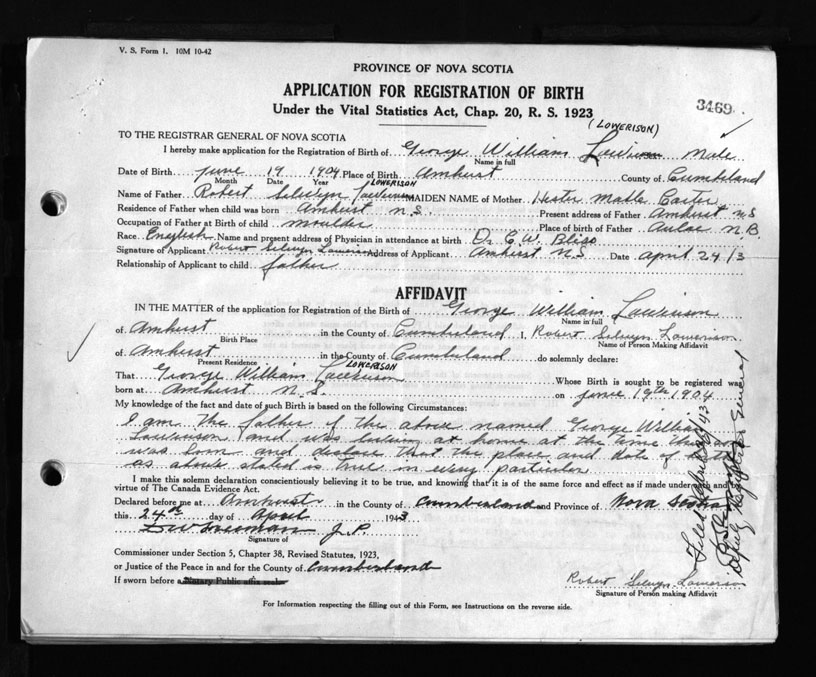 V. S. Form 1. 10M 10-42
PROVINCE OF NOVA SCOTIA
APPLICATION FOR REGISTRATION OF BIRTH
3469
Under the Vital Statistics Act, Chap. 20, R. S. 1923
(LOWERISON)
TO THE REGISTRAR GENERAL OF NOVA SCOTIA
I hereby make application for the Registration of Birth of George William Male
Name in full
Date of Birth June 19 1904 Place of Birth Amherst County of Cumberland
Month Date Year
LOWERISON
Name of Father Robert Selwyn MAIDEN NAME of Mother Hester Carter
Residence of Father when child was born Amherst N.S. Present address of Father Amherst N.S
Occupation of Father at Birth of child moulder Place of birth of Father Aulac N.B
Race English Name and present address of Physician in attendance at birth Dr C. W. Bliss
Signature of Applicant Robert Selwyn Lowerison Address of Applicant Amherst N.S Date April 24/3
Relationship of Applicant to child father
AFFIDAVIT
IN THE MATTER of the application for Registration of the Birth of George William
Name in full
of Amherst in the County of Cumberland I, Robert Selwyn Lowerison
Birth Place Name of Person Making Affidavit
of Amherst in the County of Cumberland do solemnly declare:
Present Residence
LOWERISON
That George William Whose Birth is sought to be registered was
born at Amherst N.S. on June 19th 1904
My knowledge of the fact and date of such Birth is based on the following Circumstances:
I am the father of the above named George William
and was living at home at the time
was born and declare that the place and date of birth
as above stated is true in every particular
I make this solemn declaration conscientiously believing it to be true, and knowing that it is of the same force and effect as if made under oath and
virtue of The Canada Evidence Act.
Declared before me at Amherst in the County of Cumberland and Province of Nova Scotia
this 24th day of April 1943
Freeman J.P.
Signature of
Commissioner under Section 5, Chapter 38, Revised Statutes, 1923,
or Justice of the Peace in and for the County of Cumberland
If sworn before a Notary Public affix seal
Robert Selwyn Lowerison
Signature of Person making Affidavit
For Information respecting the filling out of this Form, see Instructions on the reverse side.
Filed
Deputy Registrar General